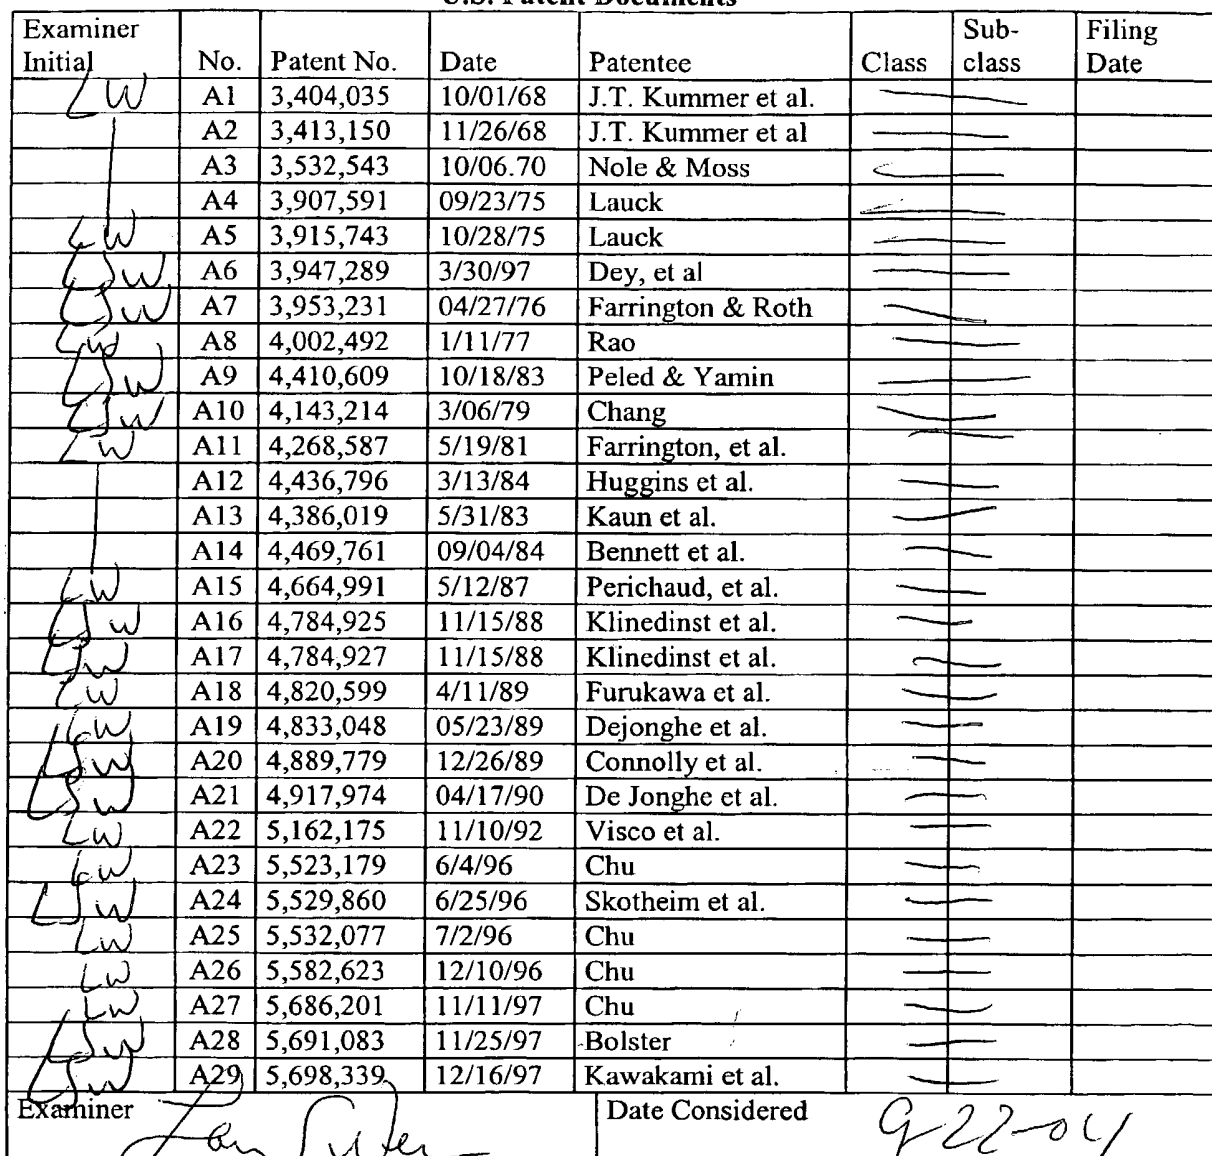 U.S. Patent Documents
Examiner Initial No. Patent No. Date Patentee Class Sub-class Filing Date
LW A1 3,404,035 10/01/68 J.T. Kummer et al.
A2 3,413,150 11/26/68 J.T. Kummer et al
A3 3,532,543 10/06.70 Nole & Moss
A4 3,907,591 09/23/75 Lauck
LW A5 3,915,743 10/28/75 Lauck
LSW A6 3,947,289 3/30/97 Dey, et al
LSW A7 3,953,231 04/27/76 Farrington & Roth
LW A8 4,002,492 1/11/77 Rao
LSW A9 4,410,609 10/18/83 Peled & Yamin
LSW A10 4,143,214 3/06/79 Chang
LW A11 4,268,587 5/19/81 Farrington, et al.
A12 4,436,796 3/13/84 Huggins et al.
A13 4,386,019 5/31/83 Kaun et al.
A14 4,469,761 09/04/84 Bennett et al.
LW A15 4,664,991 5/12/87 Perichaud, et al.
LSW A16 4,784,925 11/15/88 Klinedinst et al.
LSW A17 4,784,927 11/15/88 Klinedinst et al.
LW A18 4,820,599 4/11/89 Furukawa et al.
LW A19 4,833,048 05/23/89 Dejonghe et al.
LSW A20 4,889,779 12/26/89 Connolly et al.
LSW A21 4,917,974 04/17/90 De Jonghe et al.
LW A22 5,162,175 11/10/92 Visco et al.
LW A23 5,523,179 6/4/96 Chu
LSW A24 5,529,860 6/25/96 Skotheim et al.
LW A25 5,532,077 7/2/96 Chu
LW A26 5,582,623 12/10/96 Chu
LW A27 5,686,201 11/11/97 Chu
LSW A28 5,691,083 11/25/97 Bolster
LSW A29 5,698,339 12/16/97 Kawakami et al.
Examiner Date Considered 9-22-04